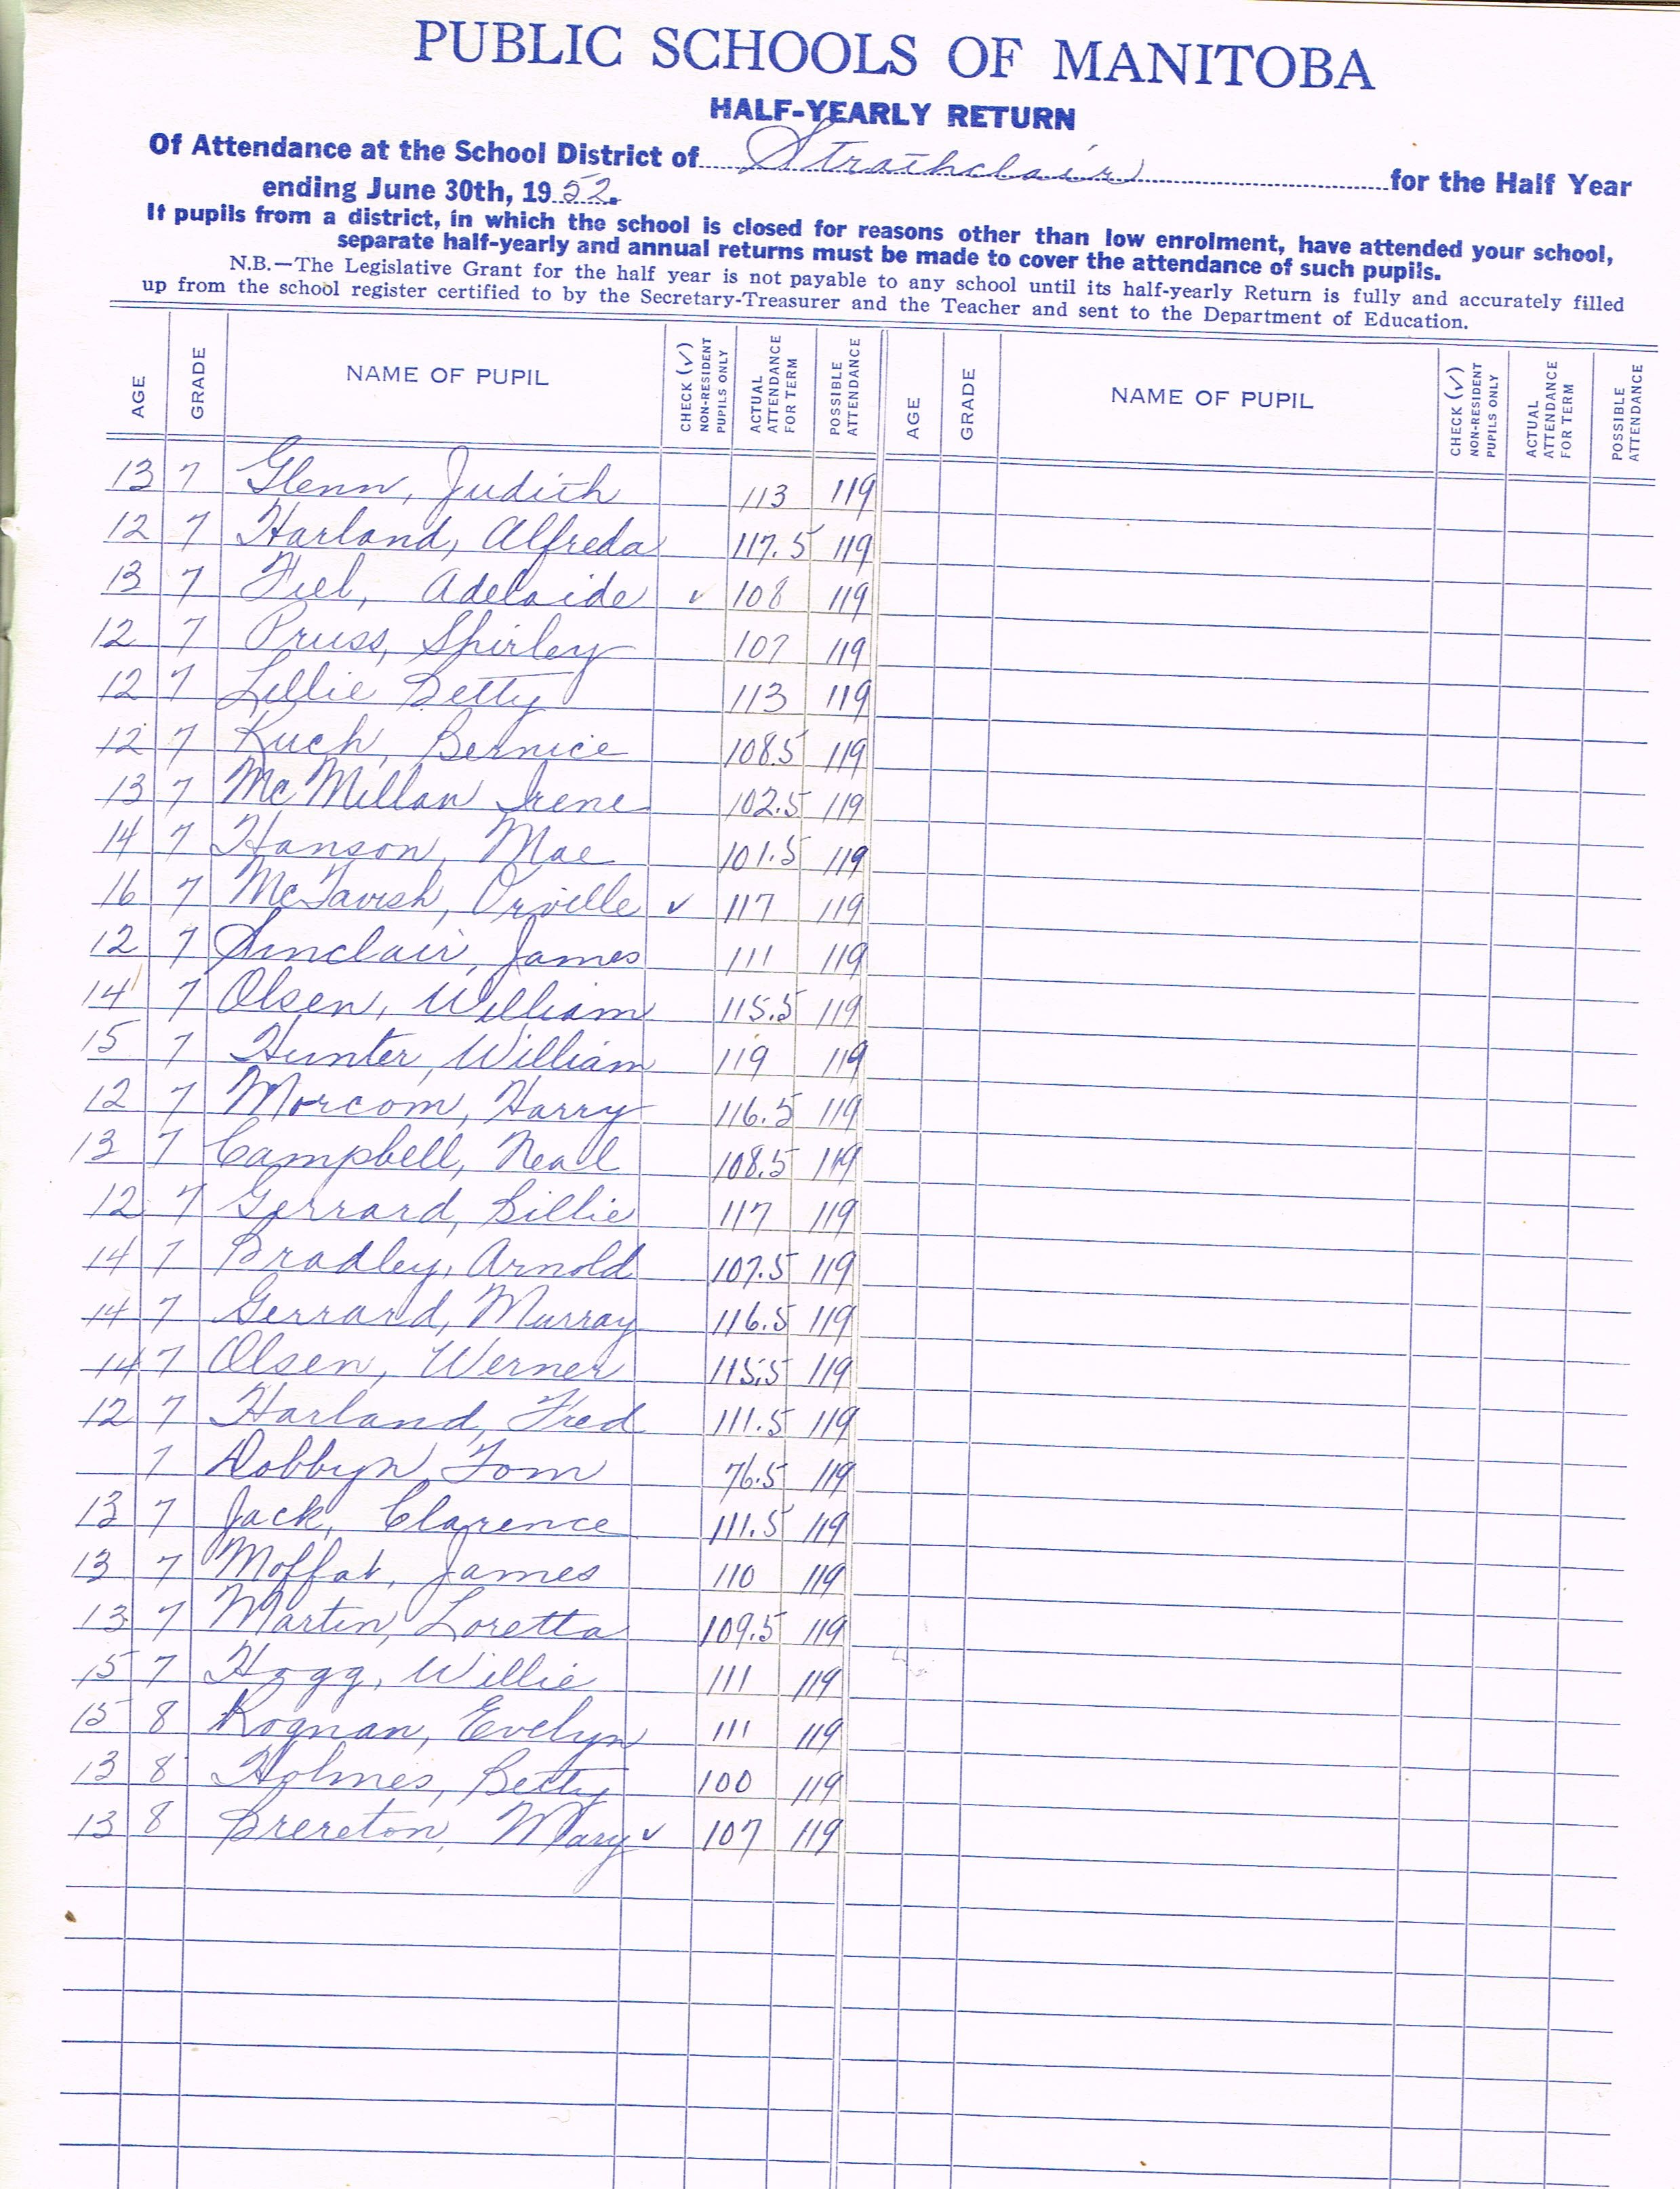 PUBLIC SCHOOLS OF MANITOBA
HALF-YEARLY RETURN
Of Attendance at the School District of Strathclair for the Half Year
ending June 30th, 1952.
If pupils from a district, in which the school is closed for reasons other than low enrolment, have attended your school,
separate half-yearly and annual returns must be made to cover the attendance of such pupils.
N.B.—The Legislative Grant for the half year is not payable to any school until its half-yearly Return is fully and accurately filled
up from the school register certified to by the Secretary-Treasurer and the Teacher and sent to the Department of Education.
AGE GRADE NAME OF PUPIL CHECK (✓) NON-RESIDENT PUPILS ONLY ACTUAL ATTENDANCE FOR TERM POSSIBLE ATTENDANCE AGE GRADE NAME OF PUPIL CHECK (✓) NON-RESIDENT PUPILS ONLY ACTUAL ATTENDANCE FOR TERM POSSIBLE ATTENDANCE
13 7 Glenn, Judith 113 119
12 7 Harland, Alfreda 117.5 119
13 7 Adelaide ✓ 108 119
12 7 Pruss, Shirley 107 119
12 7 Lillie Betty 113 119
12 7 Kuch, Bernice 108.5 119
13 7 McMillan Irene 102.5 119
14 7 Hanson, Mae 101.5 119
16 7 McTavish, Orville ✓ 117 119
12 7 Sinclair, James 111 119
14 7 Olsen, William 115.5 119
15 7 Hunter, William 119 119
12 7 Morcom, Harry 116.5 119
13 7 Campbell, Neal 108.5 119
12 7 Gerrard, Billie 117 119
14 7 Bradley, Arnold 107.5 119
14 7 Gerrard, Murray 116.5 119
14 7 Olsen, Werner 115.5 119
12 7 Harland, Fred 111.5 119
7 Dobbyn, Tom 76.5 119
13 7 Jack, Clarence 111.5 119
13 7 Moffat, James 110 119
13 7 Martin, Loretta 109.5 119
15 7 Hogg, Willie 111 119
15 8 Rognan, Evelyn 111 119
13 8 Holmes, Betty 100 119
13 8 Brereton, Mary ✓ 107 119